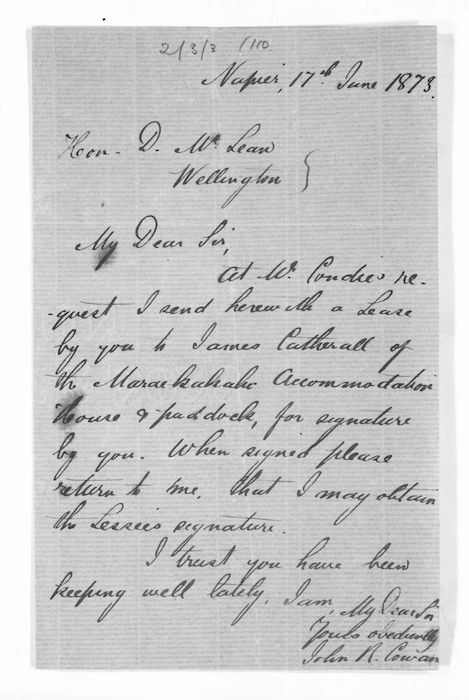 2/3/3 (110
Napier, 17th June 1873.
Hon. D. McLean
Wellington
My Dear Sir,
At Mr. Condie's re-
-quest I send herewith a Lease
by you to James Catherall of
the Maraekakaho Accommodation
House & paddock, for signature
by you. When signed please
return to me, that I may obtain
the Lessee's signature.
I trust you have been
keeping well lately. I am, My Dear Sir
Yours obediently
John R. Cowan